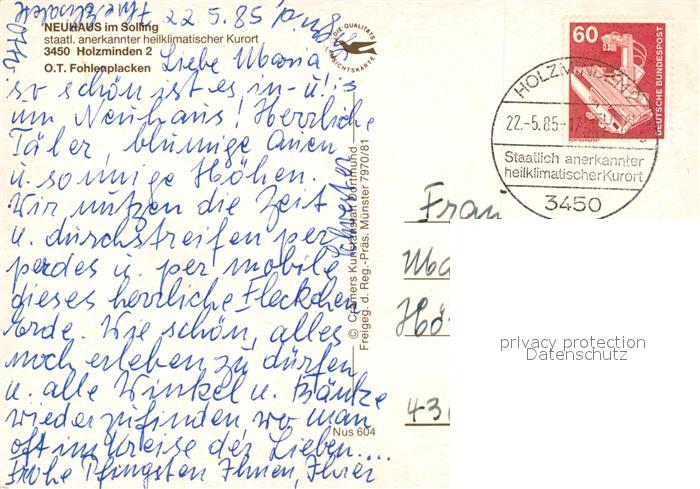 NEUHAUS im Solling
staatl. anerkannter heilklimatischer Kurort
3450 Holzminden 2
O.T. Fohlenplacken
22.5.85
Liebe Maria
so schön ist es in- u.
um Neuhaus! Herrliche
Täler, blumige Auen
u. sonnige Höhen.
Wir nutzen die Zeit
u. durchstreifen per
pedes u. per mobile
dieses herrliche Fleckchen
Erde. Wie schön, alles
noch erleben zu dürfen
u. alle Winkel u. Bänke
wiederzufinden, wo man
oft im Kreise der Lieben....
Frohe Pfingsten Ihnen, Ihrer
Schwester
DIE QUALITÄTS
ANSICHTSKARTE
© Cramers Kunstanstalt Dortmund
Freigeg. d. Reg.-Präs. Münster 7970/81
Nus 604
60
DEUTSCHE BUNDESPOST
HOLZMINDEN
22.-5.85-17
Staatlich anerkannter
heilklimatischer Kurort
3450
Frau
Ma
Hö
43
privacy protection
Datenschutz